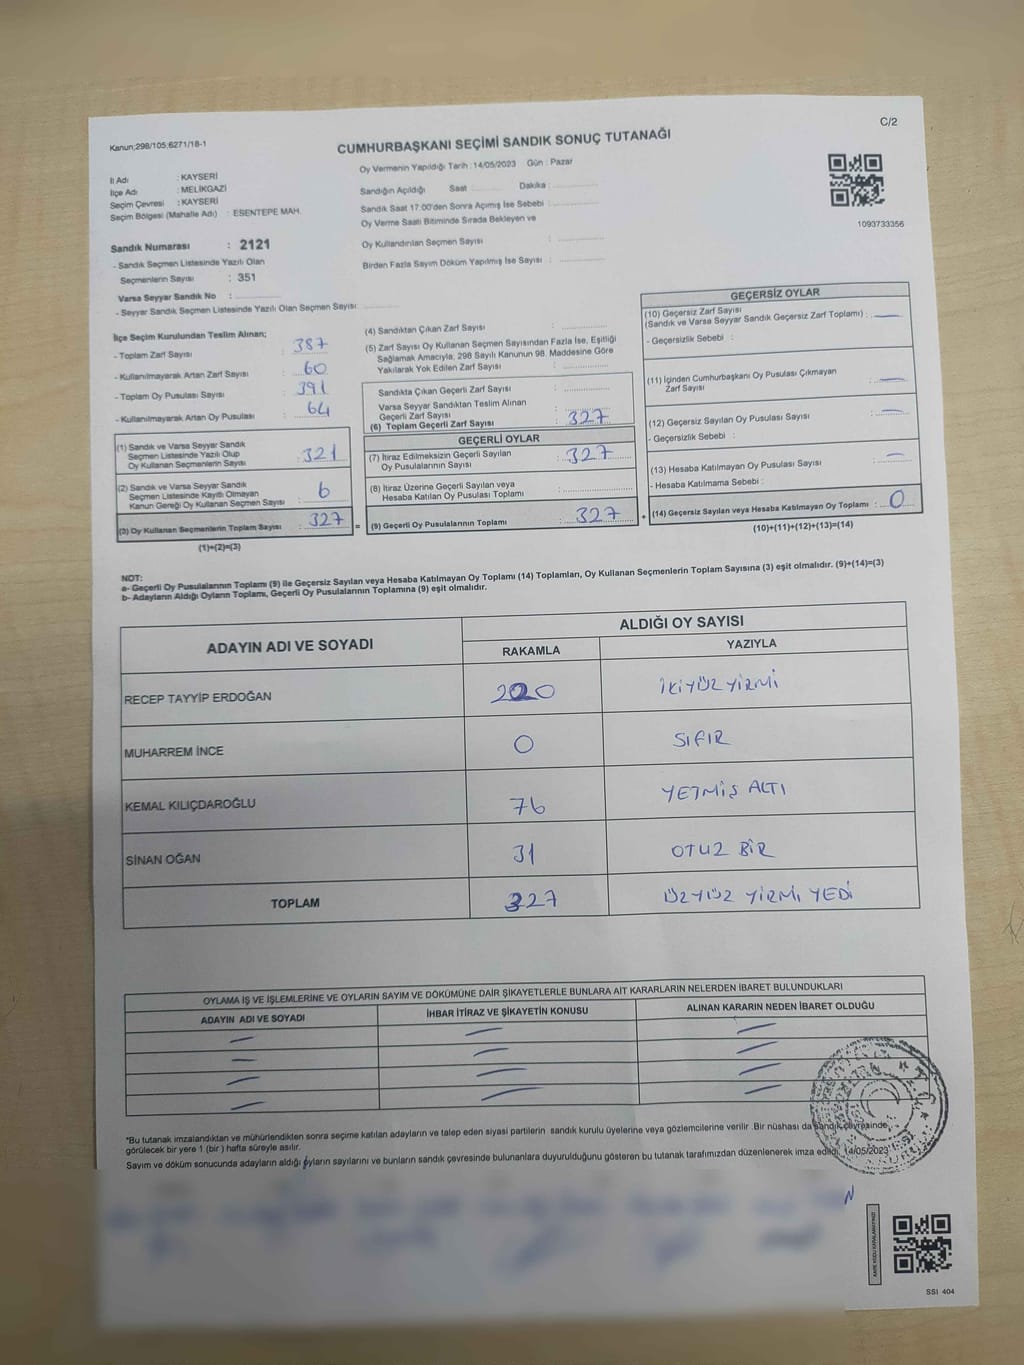 C/2
Kanun;298/105;6271/18-1
CUMHURBAŞKANI SEÇİMİ SANDIK SONUÇ TUTANAĞI
İl Adı : KAYSERİ
İlçe Adı : MELİKGAZİ
Seçim Çevresi : KAYSERİ
Seçim Bölgesi (Mahalle Adı) : ESENTEPE MAH.
Sandık Numarası : 2121
- Sandık Seçmen Listesinde Yazılı Olan
Seçmenlerin Sayısı : 351
Varsa Seyyar Sandık No :
- Seyyar Sandık Seçmen Listesinde Yazılı Olan Seçmen Sayısı:
Oy Vermenin Yapıldığı Tarih : 14/05/2023 Gün : Pazar
Sandığın Açıldığı Saat Dakika :
Sandık Saat 17:00'den Sonra Açımış İse Sebebi :
Oy Verme Saati Bitiminde Sırada Bekleyen ve
Oy Kullandırılan Seçmen Sayısı :
Birden Fazla Sayım Döküm Yapılmış İse Sayısı :
1093733356
İlçe Seçim Kurulundan Teslim Alınan;
- Toplam Zarf Sayısı : 387
- Kullanılmayarak Artan Zarf Sayısı : 60
- Toplam Oy Pusulası Sayısı : 391
- Kullanılmayarak Artan Oy Pusulası : 64
(1) Sandık ve Varsa Seyyar Sandık
Seçmen Listesinde Yazılı Olup
Oy Kullanan Seçmenlerin Sayısı : 321
(2) Sandık ve Varsa Seyyar Sandık
Seçmen Listesinde Kayıtlı Olmayan
Kanun Gereği Oy Kullanan Seçmen Sayısı : 6
(3) Oy Kullanan Seçmenlerin Toplam Sayısı : 327
(1)+(2)=(3)
(4) Sandıktan Çıkan Zarf Sayısı :
(5) Zarf Sayısı Oy Kullanan Seçmen Sayısından Fazla İse, Eşitliği
Sağlamak Amacıyla, 298 Sayılı Kanunun 98. Maddesine Göre
Yakılarak Yok Edilen Zarf Sayısı :
Sandıkta Çıkan Geçerli Zarf Sayısı :
Varsa Seyyar Sandıktan Teslim Alınan
Geçerli Zarf Sayısı :
(6) Toplam Geçerli Zarf Sayısı : 327
GEÇERLİ OYLAR
(7) İtiraz Edilmeksizin Geçerli Sayılan
Oy Pusulalarının Sayısı : 327
(8) İtiraz Üzerine Geçerli Sayılan veya
Hesaba Katılan Oy Pusulası Toplamı :
= (9) Geçerli Oy Pusulalarının Toplamı : 327
GEÇERSİZ OYLAR
(10) Geçersiz Zarf Sayısı
(Sandık ve Varsa Seyyar Sandık Geçersiz Zarf Toplamı) : —
- Geçersizlik Sebebi :
(11) İçinden Cumhurbaşkanı Oy Pusulası Çıkmayan
Zarf Sayısı : —
(12) Geçersiz Sayılan Oy Pusulası Sayısı : —
- Geçersizlik Sebebi :
(13) Hesaba Katılmayan Oy Pusulası Sayısı : —
- Hesaba Katılmama Sebebi :
+ (14) Geçersiz Sayılan veya Hesaba Katılmayan Oy Toplamı : 0
(10)+(11)+(12)+(13)=(14)
NOT:
a- Geçerli Oy Pusulalarının Toplamı (9) ile Geçersiz Sayılan veya Hesaba Katılmayan Oy Toplamı (14) Toplamları, Oy Kullanan Seçmenlerin Toplam Sayısına (3) eşit olmalıdır. (9)+(14)=(3)
b- Adayların Aldığı Oyların Toplamı, Geçerli Oy Pusulalarının Toplamına (9) eşit olmalıdır.
ADAYIN ADI VE SOYADI ALDIĞI OY SAYISI
RAKAMLA YAZIYLA
RECEP TAYYİP ERDOĞAN 220 İKİYÜZ YİRMİ
MUHARREM İNCE 0 SIFIR
KEMAL KILIÇDAROĞLU 76 YETMİŞ ALTI
SİNAN OĞAN 31 OTUZ BİR
TOPLAM 327 ÜZYÜZ YİRMİ YEDİ
OYLAMA İŞ VE İŞLEMLERİNE VE OYLARIN SAYIM VE DÖKÜMÜNE DAİR ŞİKAYETLERLE BUNLARA AİT KARARLARIN NELERDEN İBARET BULUNDUKLARI
ADAYIN ADI VE SOYADI İHBAR İTİRAZ VE ŞİKAYETİN KONUSU ALINAN KARARIN NEDEN İBARET OLDUĞU
— — —
— — —
— — —
— — —
*Bu tutanak imzalandıktan ve mühürlendikten sonra seçime katılan adayların ve talep eden siyasi partilerin sandık kurulu üyelerine veya gözlemcilerine verilir .Bir nüshası da sandık çevresinde
görülecek bir yere 1 (bir ) hafta süreyle asılır.
Sayım ve döküm sonucunda adayların aldığı oyların sayılarını ve bunların sandık çevresinde bulunanlara duyurulduğunu gösteren bu tutanak tarafımızdan düzenlenerek imza edildi. 14/05/2023
SSI 404